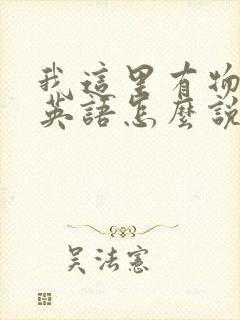 我這里有物
英語怎麼說
吳法憲